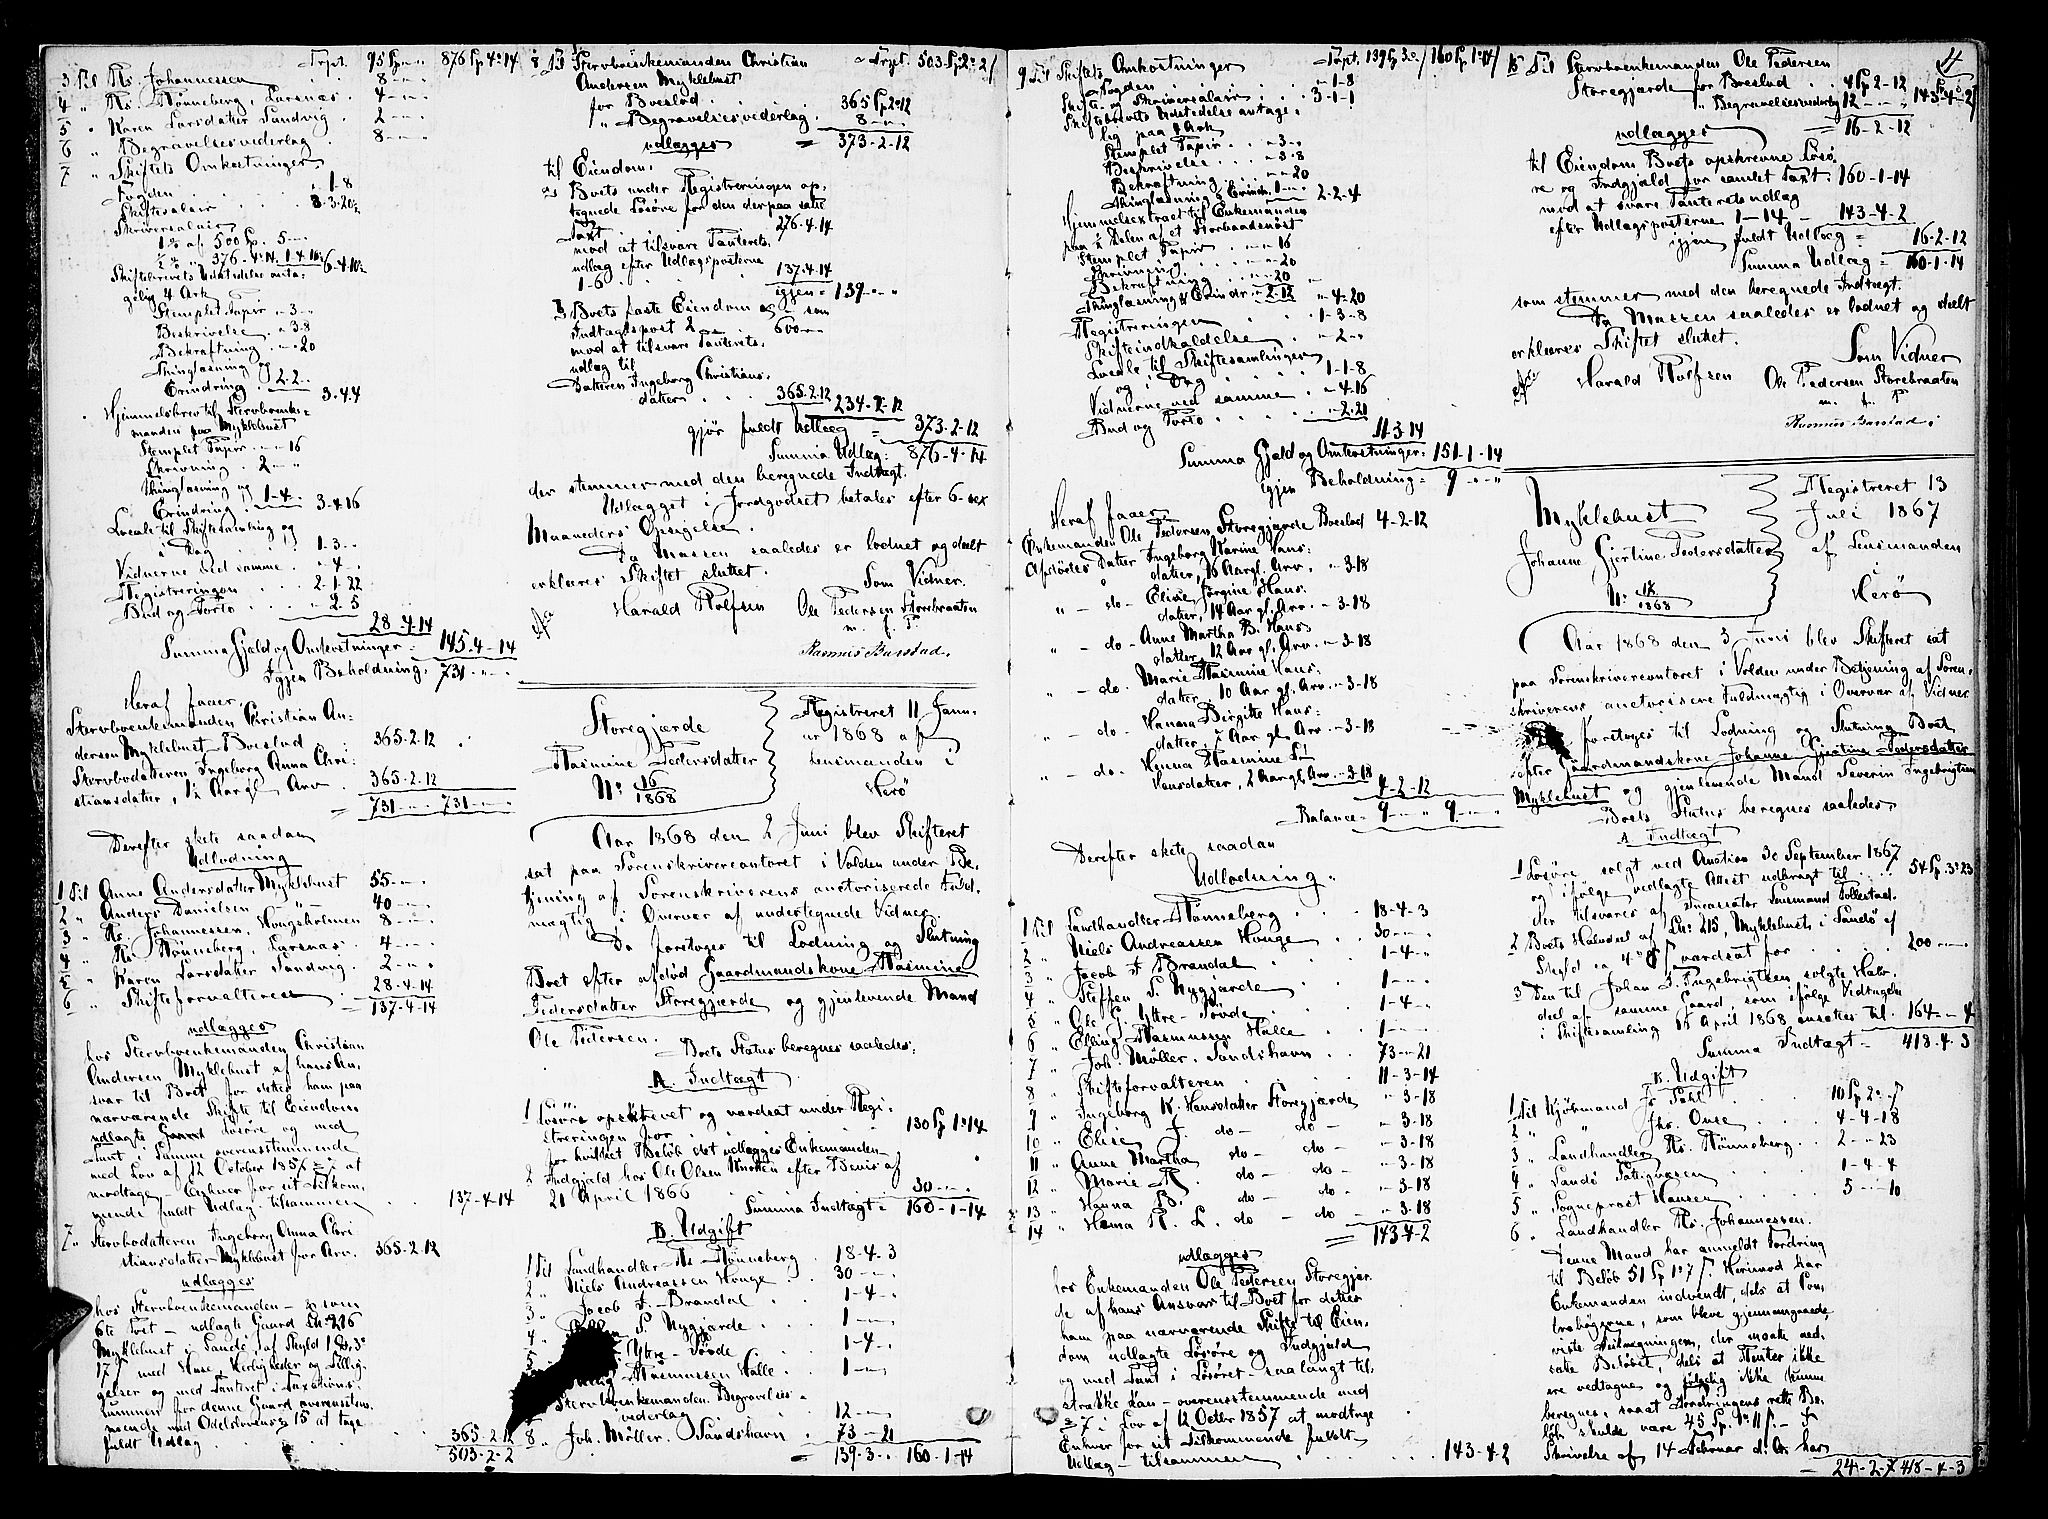 Trpt. 95 Sp „-„ 876 Sp 4-14
3 Til Rs. Johannessen . . 8-„-„
4 „ Rs. Rønneberg, Larsnæs . 4-„-„
5 „ Karen Larsdatter Sandvig . 2-„-„
6 „ Begravelsesvederlag . 8-„-„
7 „ Skiftets Omkostninger
Fogden . . . „-1-8
Skiftesalair . . . 8-3-20½
Skriversalair
1 % af 500 Sp. 5-„-„
½ % „ 376-4-14. 1-4-10½ 6-4-10½
Skiftebrevets Udstedelse anta-
gelig 4 Ark
Stemplet Papir „-3-„
Beskrivelse „-3-8
Bekræftning . „-„-20
Thinglæsning og
Erindring . 2-2-„
3-4-4
Hjemmelsbrev til Stervboenke-
manden paa Myklebust
Stemplet Papir „-„-16
Skrivning . 2-„-„
Thinglæsning og
Erindring . 1-4-„ 3-4-16
Locale til Skiftesamling og
i Dag . . . 1-3-„
Vidnerne ved samme . „-4-„
Registreringen . . 2-1-22
Bud og Porto . . . „-2-5
28-4-14
Summa Gjæld og Omkostninger = 145-4-14
Igjen Beholdning, 731-„-„
Heraf faaer,
Stervboenkemanden Christian An-
dersen Myklebust Boeslod . 365-2-12
Stervbodatteren Ingeborg Anna Chri-
stiansdatter, 1½ Aar gl. Arv . 365-2-12
= 731-„-„ 731-„-„
Derefter skete saadan
Udlodning
1 Til Anne Andersdatter Myklebust 55-„-„
2 „ Anders Danielsen — „ — 40-„-„
3 „ Rs. Johannessen, Hougsholmen 8-„-„
4 „ Rs. Rønneberg, Larsnæs . 4-„-„
5 „ Karen Larsdatter Sandvig . 2-„-„
6 „ Skifteforvalteren . . 28-4-14
= 137-4-14
udlægges
hos Stervboenkemanden Christian
Andersen Myklebust af hans An-
svar til Boet for dette ham paa
nærværende Skifte til Eiendom
udlagte Løsøre og med
Pant i samme overensstemmende
med Lov af 12 October 1857 § 7 at
modtage — Enhver for sit Tilkom-
mende fuldt Udlæg, tilsammen . . 137-4-14
7 „ Stervbodatteren Ingeborg Anna Chri
stiansdatter Myklebust for Arv . 365-2-12
udlægges
hos Stervboenkemanden — som
6te Post — udlagte Gaard LN: 216
Myklebust i Sandø, af Skyld 1 D, 3 O
17 S med Huse, Herligheder og Tillig-
gelser og med Panteret i Taxations-
summen for denne Gaard overensstem-
mende med Odelslovens § 15 at tage
fuldt Udlæg . . . 365-2-12
503-2-2

8 Til Stervboenkemanden Christian „ Trpt. 503 Sp 2-2
Andersen Myklebust
for Boeslod . . 365 Sp 2-12
„ Begravelsesvederlag . 8-„-„
udlægges = 373-2-12
til Eiendom,
a, Boets under Registreringen op-
tegnede Løsøre for den derpaa satte
Taxt . . . 276-4-14
mod at tilsvare Panterets-
udlæg efter Udlægsposterne
1-6 . . . 137-4-14
igjen = 139-„-„
b, Boets faste Eiendom — som
Indtægtspost 2 . . 600-„-„
mod at tilsvare Panterets-
udlæg til
Datteren Ingeborg Christians-
datter . . . 365-2-12
234-2-12
gjør fuldt Udlæg = 373-2-12
Summa Udlæg = 876-4-14
der stemmer med den beregnede Indtægt.
Udlægget i Jordgodset betales efter 6-sex
Maaneders Opsigelse.
Da Massen saaledes er lodnet og deelt
erklæres Skiftet sluttet.
Som Vidner.
Harald Rolfsen Ole Pedersen Storebraaten
m. f. P.
Rasmus Barstad.

Storegjærde
Rasmine Pedersdatter
N: 16/1868
Registreret 11 Janu-
ar 1868 af
Lensmanden i
Herø
Aar 1868 den 2 Juni blev Skifteret
sat paa Sorenskrivercontoret i Volden under Be-
tjening af Sorenskriverens auctoriserede Fuld-
mægtig i Overvær af undertegnede Vidner.
Da foretoges til Lodning og Slutning
Boet efter afdød Gaardmandskone Rasmine
Pedersdatter Storegjærde og gjenlevende Mand
Ole Pedersen.
Boets Status beregnes saaledes:
A. Indtægt
1 Løsøre opskrevet og vurdsat under Regi-
streringen for . . . 130 Sp 1-14
for hvilket Beløb det udlægges Enkemanden —
2 Indgjæld hos Ole Olsen efter Beviis af
21 April 1866 . . . 30-„-„
Summa Indtægt = 160-1-14
B. Udgift
1 Til Landhandler Rs. Rønneberg . 18-4-3
2 „ Niels Andreassen Houge . 30-„-„
3 „ Jacob J. Brandal . . 1-4-„
4 S. Nygjærde . . 1-„-„
5 Yttre-Søvde . . 1-4-„
Rasmussen Halle . 1-„-„
Stervboenkemanden Begravelses-
vederlag . . . 12-„-„
8 „ Joh. Møller. Sandshavn . 73-„-21
= 139-3-„ 160-1-14

9 Til Skiftets Omkostninger Trpt. 139 Sp 3-„ 160 Sp 1-14
Fogden . . . „-1-8
Skifte- og Skriversalair . . 3-1-1
Skiftebrevets Udstedelse antage-
lig paa 3 Ark
Stemplet Papir . . „-3-„
Beskrivelse . . „-3-8
Bekræftning . . „-„-20
Thinglæsning & Erindr. 1-„-„ 2-2-4
Hjemmelsextract til Enkemanden
paa ½ Delen af et Storbaadsnøst
Stemplet Papir . . „-„-16
Skrivning . . „-„-20
Bekræftning . . „-„-20
Thinglæsning & Erindr. „-2-12 „-4-20
Registreringen . . . 1-3-8
Skifteindkaldelse . . . „-2-„
Locale til Skiftesamlingen
og i Dag . . . 1-1-8
Vidnerne ved samme . . „-4-16
Bud og Porto . . . „-2-21
11-3-14
Summa Gjæld og Omkostninger = 151-1-14
Igjen Beholdning = 9-„-„
Heraf faaer
Enkemanden Ole Pedersen Storegjærde Boeslod 4-2-12
Afdødes Datter Ingeborg Karine Hans-
datter, 16 Aar gl. Arv . „-3-18
„ — do — Elise Jørgine Hans-
datter, 14 Aar gl. Arv . „-3-18
„ — do — Anne Martha B. Hans-
datter, 12 Aar gl. Arv . „-3-18
„ — do — Marie Rasmine Hans-
datter 10 Aar gl. Arv . „-3-18
„ — do — Hanna Birgitte Hans-
datter, 7 Aar gl. Arv . „-3-18
„ — do — Hanna Rasmine L.
Hansdatter, 2 Aar gl. Arv . „-3-18
4-2-12
Balance = 9-„-„ 9-„-„
Derefter skete saadan
Udlodning.
1 Til Landhandler Rønneberg . . 18-4-3
2 „ Niels Andreassen Houge . . 30-„-„
3 „ Jacob J. Brandal . . 1-4-„
4 „ Steffen S. Nygjærde . . 1-„-„
5 „ Ole G. Yttre-Søvde . . 1-4-„
6 „ Elling Rasmussen Halle . . 1-„-„
7 „ Joh. Møller. Sandshavn . . 73-„-21
8 „ Skifteforvalteren . . . 11-3-14
9 „ Ingeborg K. Hansdatter Storegjærde „-3-18
10 „ Elise J. do — do — „-3-18
11 „ Anne Martha do — do — „-3-18
12 „ Marie R. do — do — „-3-18
13 „ Hanna B. do — do — „-3-18
14 „ Hanna R. L. do — do — „-3-18
= 143-4-2
udlægges
hos Enkemanden Ole Pedersen Storegjær-
de af hans Ansvar til Boet for dette
ham paa nærværende Skifte til Eien-
dom udlagte Løsøre og Indgjæld
og med Pant i Løsøret — saalangt til-
strække kan — overensstemmende med
§ 7 i Lov af 12 Octbr 1857 at modtage
Enhver for sit Tilkommende fuldt
Udlæg — tilsammen . . . 143-4-2

4
15 Til Stervboenkemanden Ole Pedersen
Storegjærde for Boeslod . . 4 Sp 2-12 143-4-2
„ Begravelsesvederlag 12-„-„
udlægges = 16-2-12
til Eiendom Boets opskrevne Løsø-
re og Indgjæld for samlet Taxt . 160-1-14
mod at svare Panteretsudlæg
efter Udlægsposterne 1-14 — 143-4-2
igjen fuldt Udlæg = 16-2-12
Summa Udlæg = 160-1-14
som stemmer med den beregnede Indtægt.
Da Massen saaledes er lodnet og deelt
erklæres Skiftet sluttet.
Som Vidner
Harald Rolfsen Ole Pedersen Storebraaten
m. f. P.
Rasmus Barstad.

Myklebust
Johanne Gjertine Pedersdatter
N: 17/1868
Registreret 13
Juli 1867
af Lensmanden
i Herø
Aar 1868 den 3 Juni blev Skifteret sat
paa Sorenskrivercontoret i Volden under Betjening af Soren-
skriverens auctoriserede Fuldmægtig i Overvær af Vidner
foretoges til Lodning og Slutning Boet
efter Gaardmandskone Johanne Gjertine Pedersdatter
Myklebust og gjenlevende Mand Severin Ingebrigtsen
Boets Status beregnes saaledes,
A. Indtægt
1 Løsøre solgt ved Auction 30 September 1867
og ifølge vedlagte Attest udbragt til . . 54 Sp. 3-23
der tilsvares af Incassator Lensmand Tollestad.
2 Boets Halvdel af LN: 215, Myklebust i Sandø af
Skyld ca 4 O 8 S vurdsat for . . . 200-„-„
3 Den til Johan S. Ingebrigtsen solgte Halv-
deel af samme Gaard, som ifølge Vedtagelse
i Skiftesamling 15 April 1868 ansættes til . 164-„-4
Summa Indtægt = 418-4-3
B. Udgift
1 Til Kjøbmand Js Dahl . . 10 Sp 2-7
2 „ „ Jhs. Owse . . 4-4-18
3 „ Landhandler Rs. Rønneberg . . 2-„-23
4 „ Sandø Fattigvæsen . . 1-4-4
5 „ Sogneprest Hansen . . 5-„-10
6 „ Landhandler Rs. Johannessen.
Denne Mand har anmeldt Fordring
til Beløb 51 Sp 1-7. Herimod har
Enkemanden indvendt, dels at Con-
trabøgerne, som bleve gjennemgaaede,
viste Feilregninger, der maatte ned-
sætte Beløbet, dels at Renter ikke
ere vedtagne og følgelig ikke kunne
beregnes, saaat Fordringens rette Be-
løb skulde være 45 Sp. 1-11 S. — I
Skrivelse af 14 Februar d. A. har
= 24-2-7 418-4-3